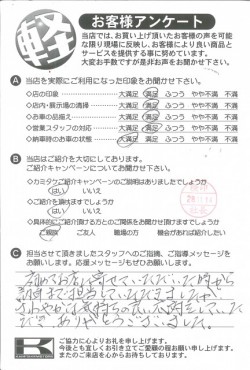 軽
お客様アンケート
当店では、お買い上げ頂いたお客様の声を可能
な限り現場に反映し、お客様により良い商品と
サービスを提供する事に努めています。
大変お手数ですが是非お声をお聞かせ下さい。
A 当店を実際にご利用になった印象をお聞かせ下さい。
◇店の印象 大満足 満足 ふつう やや不満 不満
◇店内・展示場の清掃 大満足 満足 ふつう やや不満 不満
◇お車の品揃え 大満足 満足 ふつう やや不満 不満
◇営業スタッフの対応 大満足 満足 ふつう やや不満 不満
◇納車時のお車の状態 大満足 満足 ふつう やや不満 不満
B 当店はご紹介を大切にしております。
ご紹介キャンペーンについてお聞かせ下さい。
◇カミタケご紹介キャンペーンのご説明はありましたでしょうか
はい いいえ
◇ご紹介を頂けますでしょうか
はい いいえ
◇具体的にご紹介頂ける方とのご関係をお聞かせ頂けますでしょうか
ご親戚 ご友人 職場の方 機会があれば紹介したい
C 担当させて頂きましたスタッフへのご指摘、ご指導メッセージを
お願いします。応援メッセージもぜひお願いします。
初めてお店に寄せていただいた時から
K
ご協力に心よりお礼を申し上げます。
今後とも宜しくお引き立てご愛顧の程お願い申し上げます。
またのご来店を心からお待ちしております。